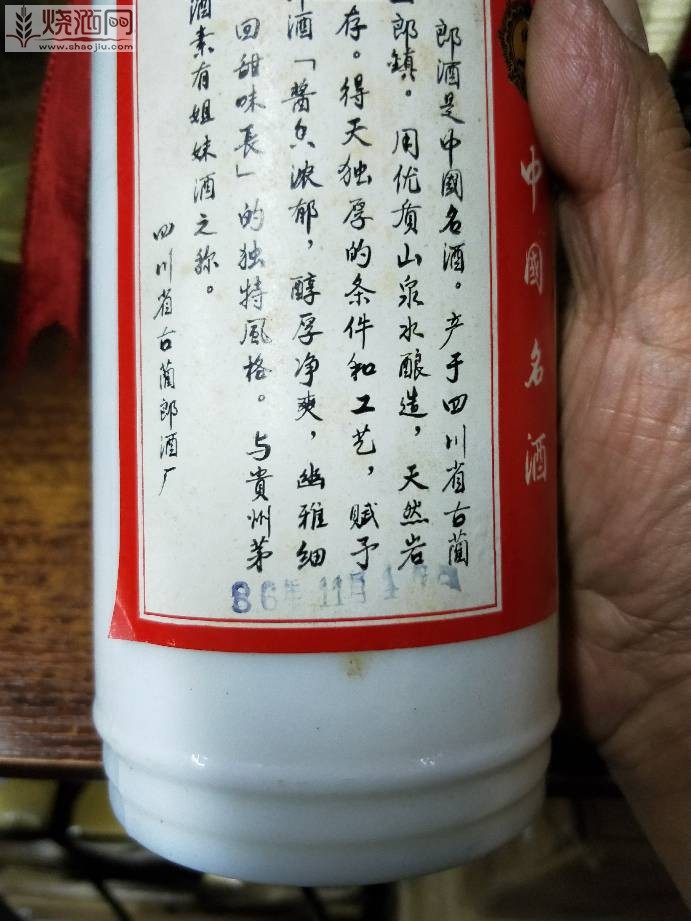 烧酒网
www.shaojiu.com
中國名酒
郎酒是中國名酒。产于四川省古蔺
郎鎮。用优质山泉水酿造，天然岩
存。得天独厚的条件和工艺，赋予
酒「醬香浓郁，醇厚净爽，幽雅细
回甜味長」的独特風格。与貴州茅
酒素有姐妹酒之称。
四川省古蔺郎酒厂
86年11月